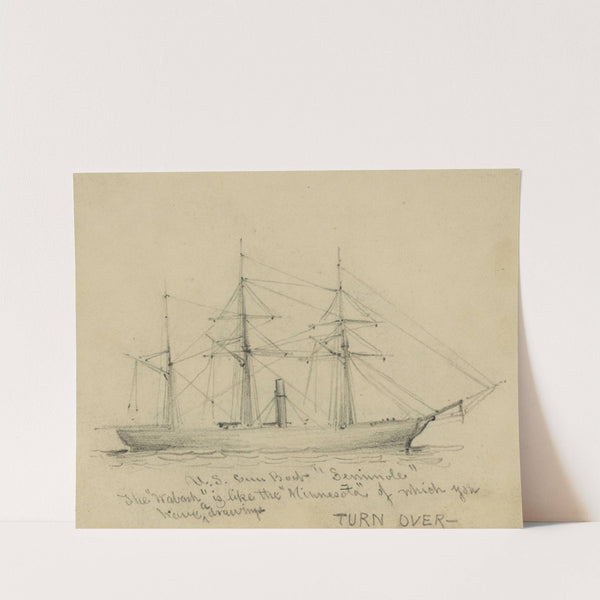 U.S. Gun Boat "Seminole"
The "Wabash" is like the "Minnesota" of which you
have a drawing
TURN OVER—